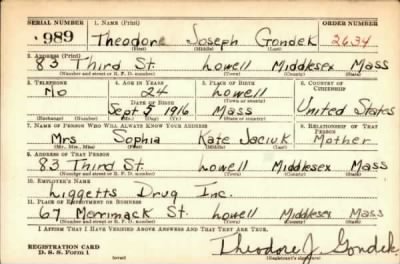 SERIAL NUMBER 1. NAME (Print) ORDER NUMBER
989 Theodore Joseph Gondek 2634
(First) (Middle) (Last)
2. ADDRESS (Print)
83 Third St. Lowell Middlesex Mass
(Number and street or R. F. D. number) (Town) (County) (State)
3. TELEPHONE 4. AGE IN YEARS 5. PLACE OF BIRTH 6. COUNTRY OF CITIZENSHIP
No 24 Lowell
DATE OF BIRTH (Town or county)
Sept 5 1916 Mass United States
(Exchange) (Number) (Mo.) (Day) (Yr.) (State or country)
7. NAME OF PERSON WHO WILL ALWAYS KNOW YOUR ADDRESS 8. RELATIONSHIP OF THAT PERSON
Mrs Sophia Kate Jaciuk Mother
(Mr., Mrs., Miss) (First) (Middle) (Last)
9. ADDRESS OF THAT PERSON
83 Third St. Lowell Middlesex Mass
(Number and street or R. F. D. number) (Town) (County) (State)
10. EMPLOYER'S NAME
Liggetts Drug Inc.
11. PLACE OF EMPLOYMENT OR BUSINESS
67 Merrimack St. Lowell Middlesex Mass
(Number and street or R. F. D. number) (Town) (County) (State)
I AFFIRM THAT I HAVE VERIFIED ABOVE ANSWERS AND THAT THEY ARE TRUE.
REGISTRATION CARD
D. S. S. Form 1 (over) Theodore J. Gondek
(Registrant's signature)